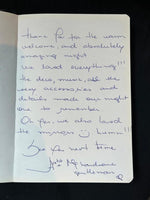 thank for the warm
welcome, and absolutely
amazing night
We loved everything!!!
the deco, music, all the
sexy accessories and
details made our night
one to remember.
Oh for, we also loved
the mirrors ;) humm!!
See you next time
gentleman